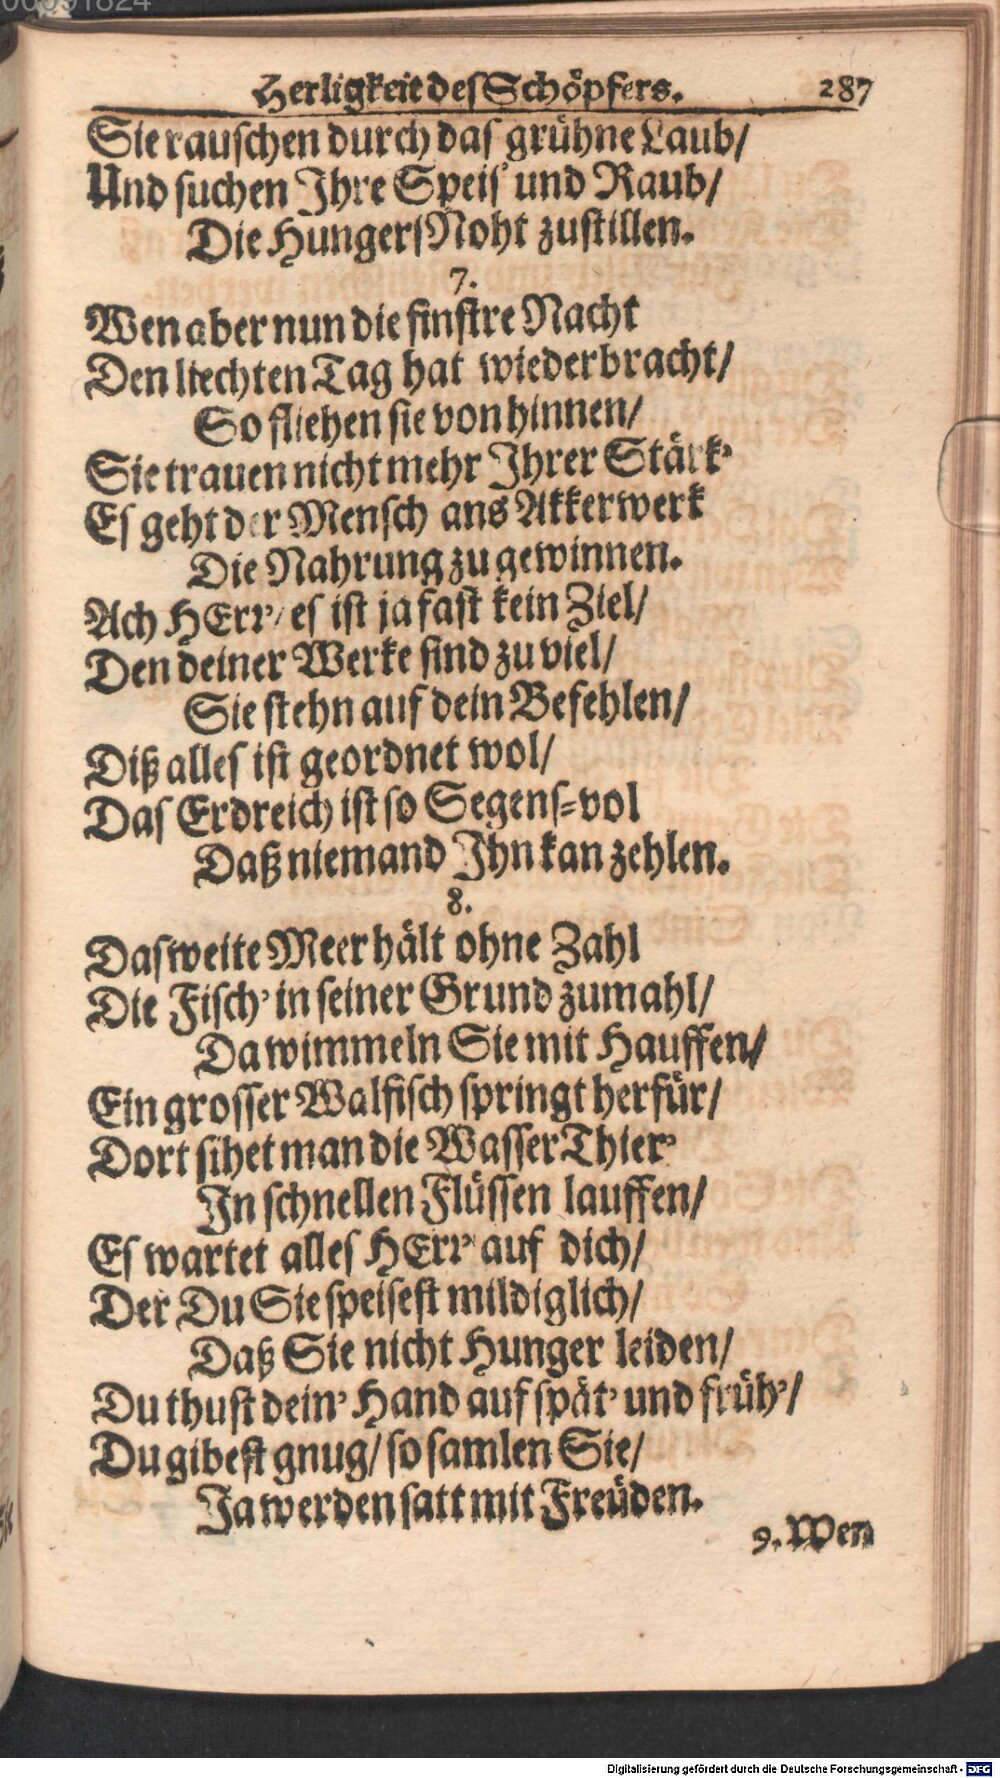 Herligkeit des Schöpfers. 287
Sie rauschen durch das grühne Laub/
Und suchen Ihre Speis' und Raub/
Die Hungers Noht zustillen.
7.
Wen aber nun die finstre Nacht
Den liechten Tag hat wiederbracht/
So fliehen sie von hinnen/
Sie trauen nicht mehr Ihrer Stärk'
Es geht der Mensch ans Akkerwerk
Die Nahrung zu gewinnen.
Ach HErr/ es ist ja fast kein Ziel/
Den deiner Werke sind zu viel/
Sie stehn auf dein Befehlen/
Diß alles ist geordnet wol/
Das Erdreich ist so Segens=vol
Daß niemand Ihn kan zehlen.
8.
Das weite Meer hält ohne Zahl
Die Fisch' in seiner Grund zumahl/
Da wimmeln Sie mit Hauffen/
Ein grosser Walfisch springt herfür/
Dort sihet man die Wasser Thier'
In schnellen Flüssen lauffen/
Es wartet alles HErr auf dich/
Der Du Sie speisest mildiglich/
Daß Sie nicht Hunger leiden/
Du thust dein' Hand auf spät' und früh'/
Du gibest gnug/ so samlen Sie/
Ja werden satt mit Freüden.
9. Wen
Digitalisierung gefördert durch die Deutsche Forschungsgemeinschaft - DFG